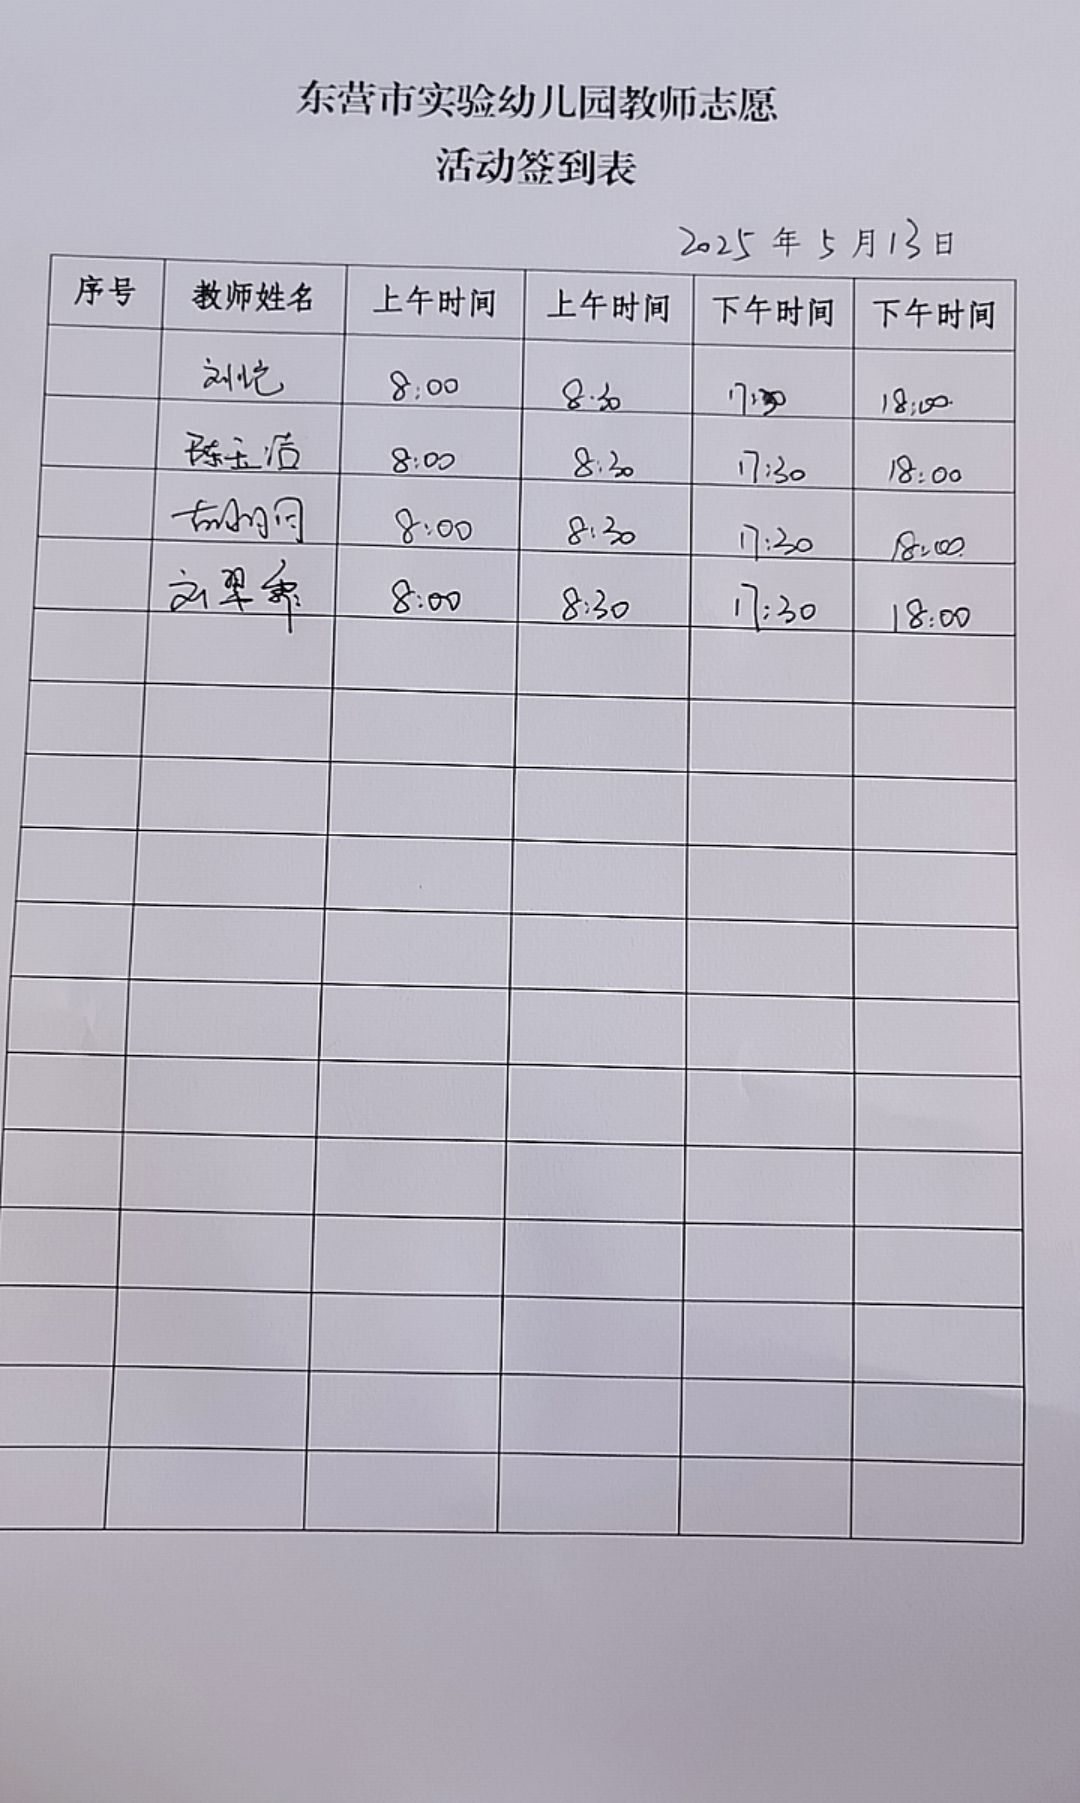 东营市实验幼儿园教师志愿
活动签到表
2025年5月13日
序号 教师姓名 上午时间 上午时间 下午时间 下午时间
刘忆 8:00 8:30 17:30 18:00
陈玉洁 8:00 8:30 17:30 18:00
8:00 8:30 17:30 18:00
刘翠 8:00 8:30 17:30 18:00